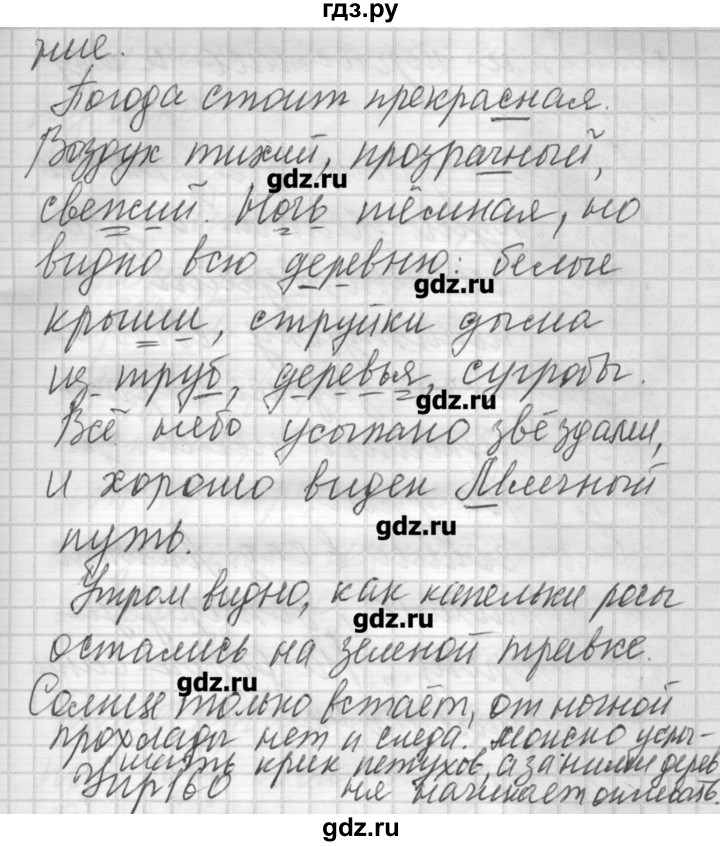 гдз.ру
ние.
Погода стоит прекрасная.
Воздух тихий, прозрачный,
gdz.ru
свежий. Ночь тёмная, но
видно всю деревню: белые
gdz.ru
крыши, струйки дыма
из труб, деревья, сугробы.
gdz.ru
Всё небо усыпано звёздами,
и хорошо виден Млечный
gdz.ru
путь.
Утром видно, как капельки росы
gdz.ru
остались на зеленой травке.
gdz.ru
Солнце только встаёт, от ночной
прохлады нет и следа. Можно услы-
шать крик петухов, а за ними дерев
Упр 160 ня начинает оживать.
gdz.ru